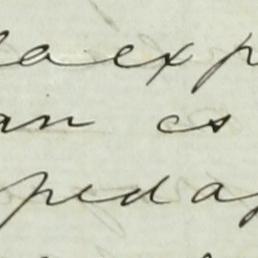 la exp
an es
peda